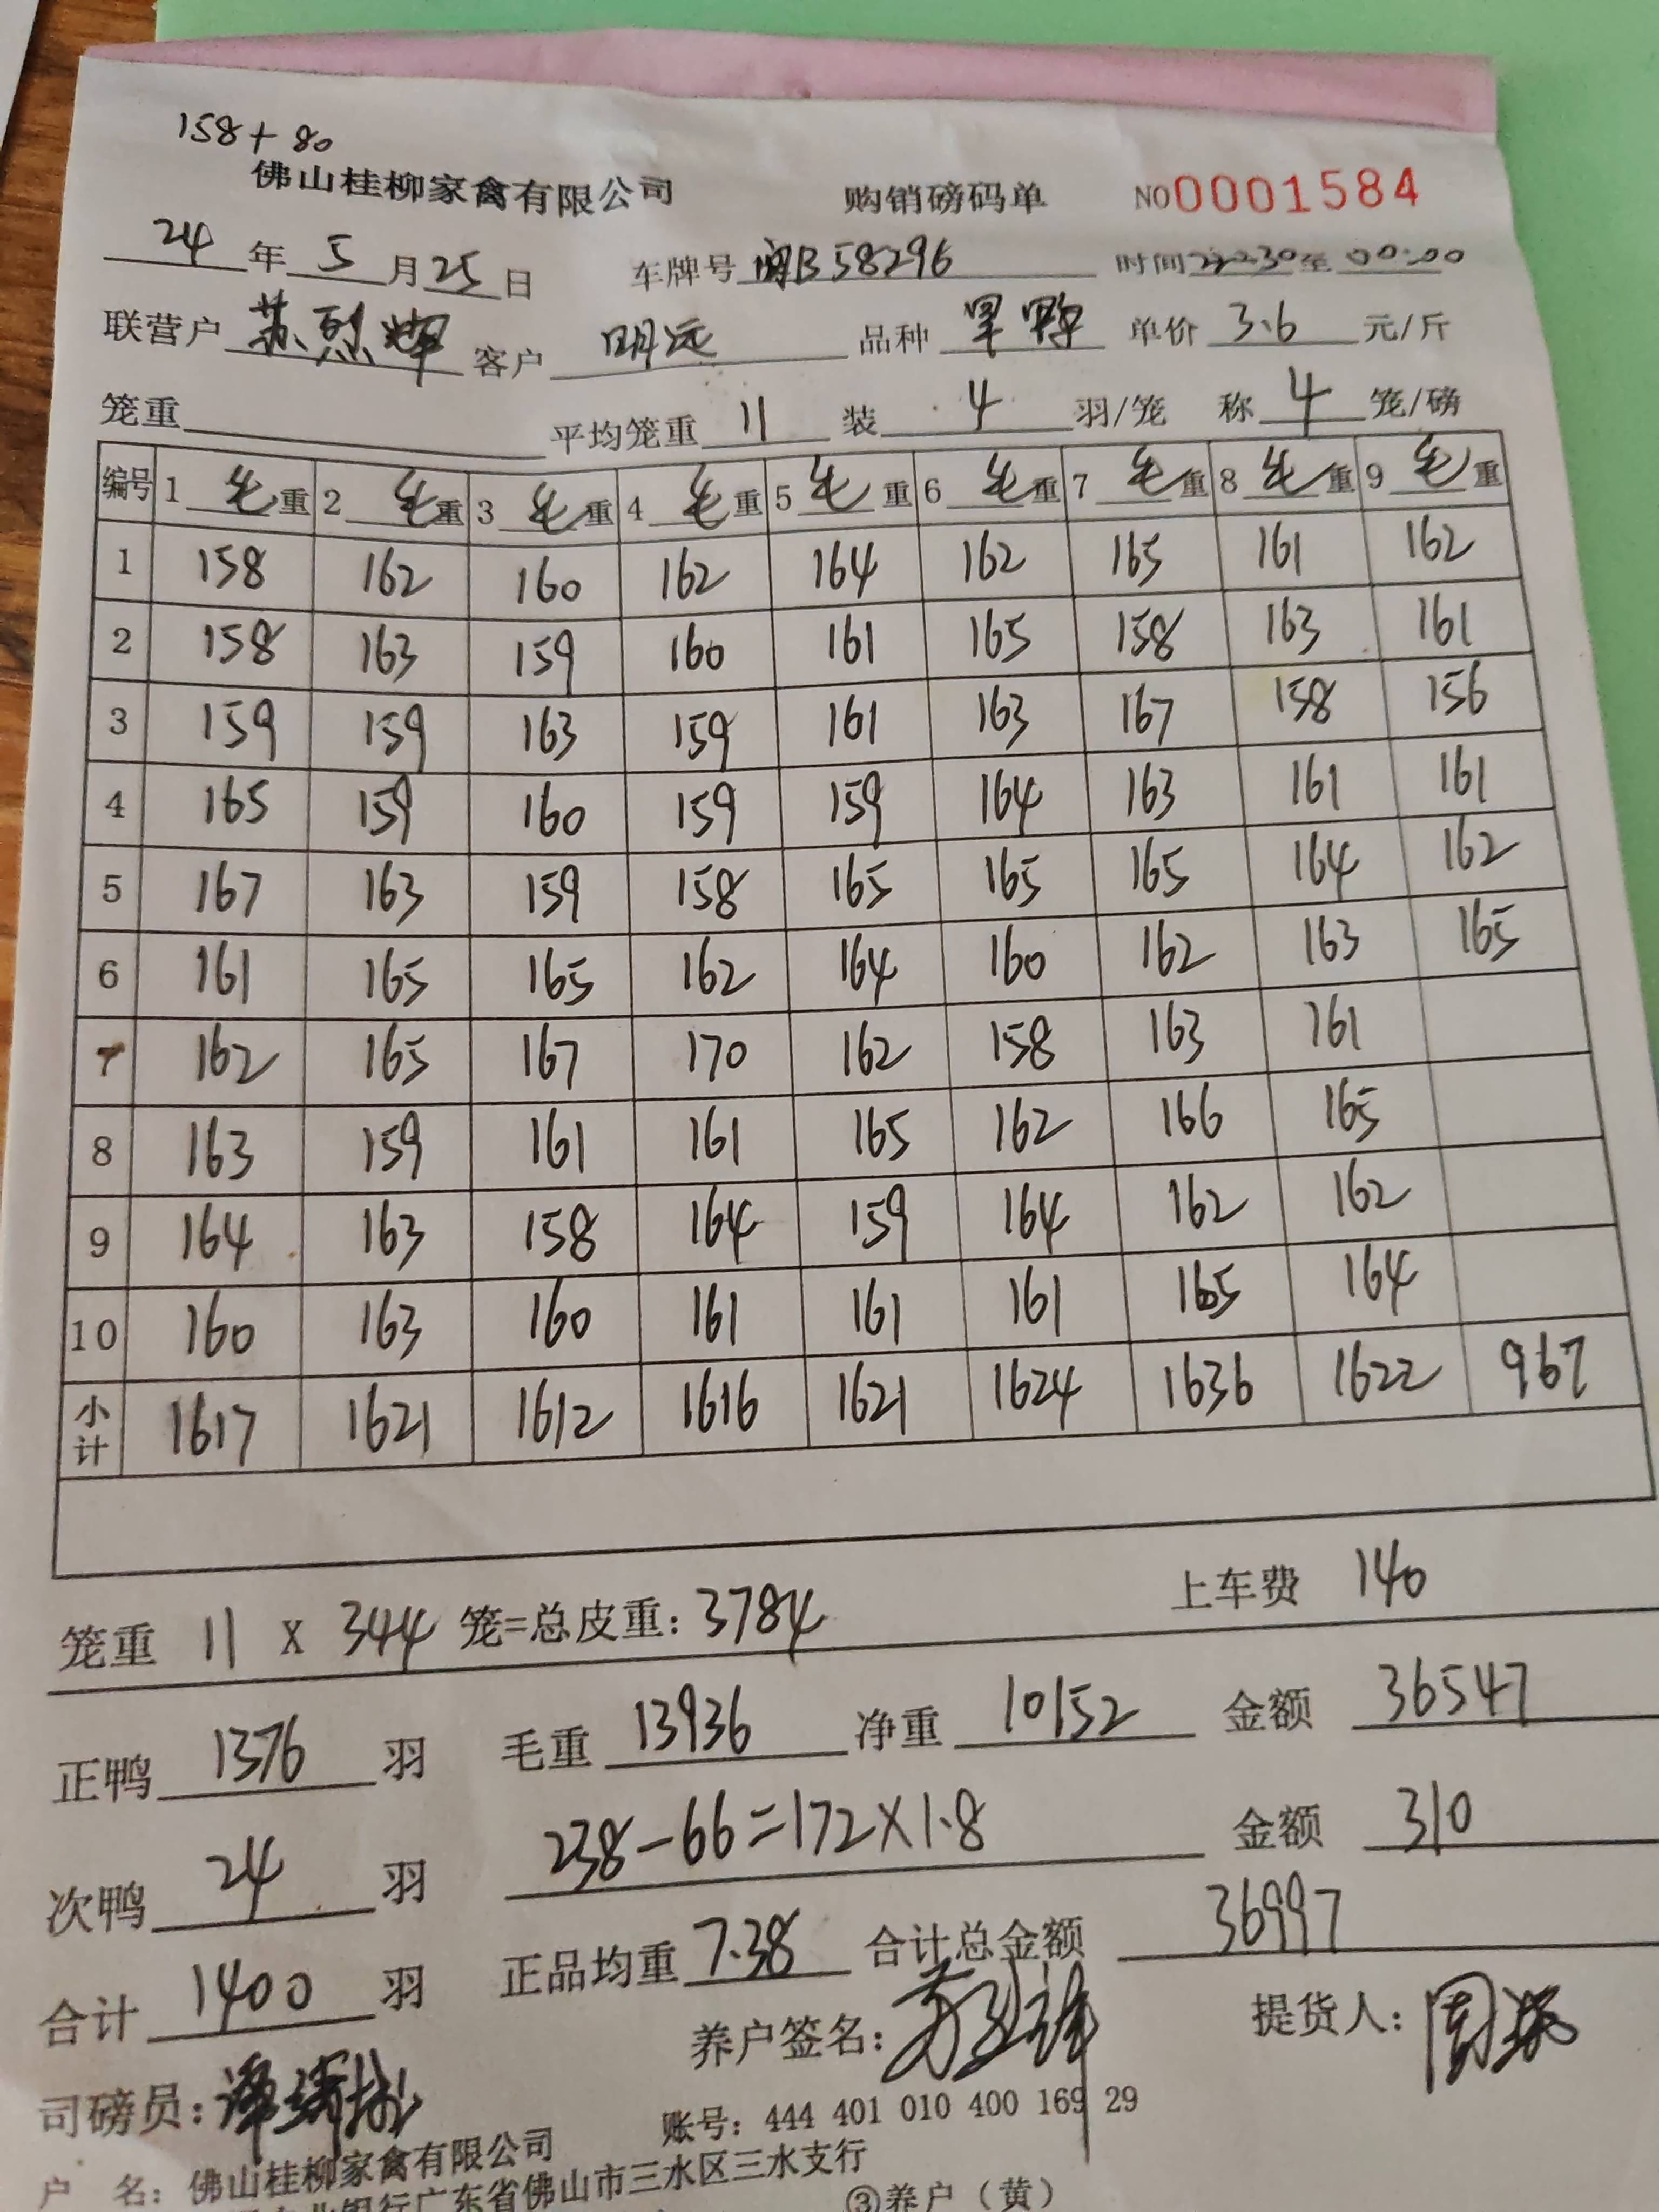 158+80
佛山桂柳家禽有限公司 购销磅码单 NO0001584
24年5月25日 车牌号闽B58296 时间22:30至00:00
联营户苏烈辉 客户 明远 品种 单价3.6元/斤
笼重 平均笼重11 装4羽/笼 称4笼/磅
编号 1毛重 2毛重 3毛重 4毛重 5毛重 6毛重 7毛重 8毛重 9毛重
1 158 162 160 162 164 162 165 161 162
2 158 163 159 160 161 165 158 163 161
3 159 159 163 159 161 163 167 158 156
4 165 159 160 159 159 164 163 161 161
5 167 163 159 158 165 165 165 164 162
6 161 165 165 162 164 160 162 163 165
7 162 165 167 170 162 158 163 161
8 163 159 161 161 165 162 166 165
9 164 163 158 164 159 164 162 162
10 160 163 160 161 161 161 165 164
小计 1617 1621 1612 1616 1621 1624 1636 1622 967
笼重 11 X 344 笼=总皮重:3784 上车费 140
正鸭1376羽 毛重13936 净重10152 金额36547
次鸭24羽 238-66=172×1.8 金额310
合计1400羽 正品均重7.38 合计总金额36997
司磅员: 养户签名: 提货人:
户 名:佛山桂柳家禽有限公司 账号:444 401 010 400 169 29
业银行广东省佛山市三水区三水支行
③养户(黄)